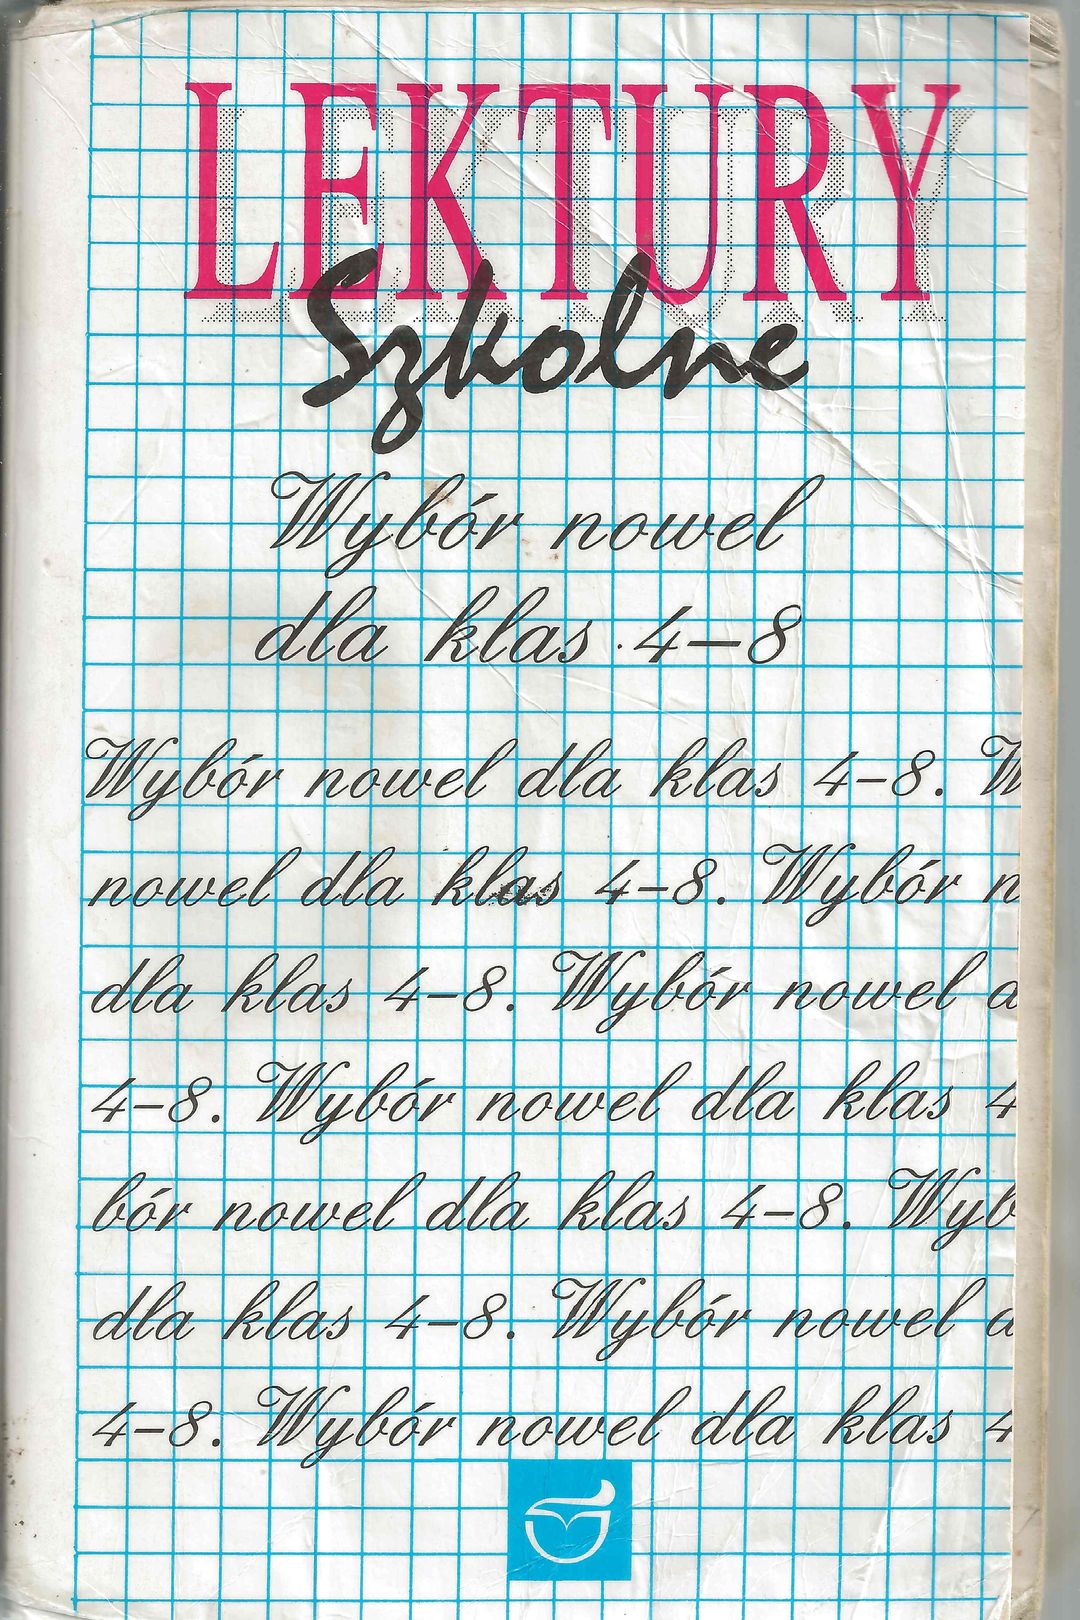 LEKTURY
Szkolne
Wybór nowel
dla klas 4–8
Wybór nowel dla klas 4–8. W
nowel dla klas 4–8. Wybór n
dla klas 4–8. Wybór nowel d
4–8. Wybór nowel dla klas 4
bór nowel dla klas 4–8. Wyb
dla klas 4–8. Wybór nowel d
4–8. Wybór nowel dla klas 4